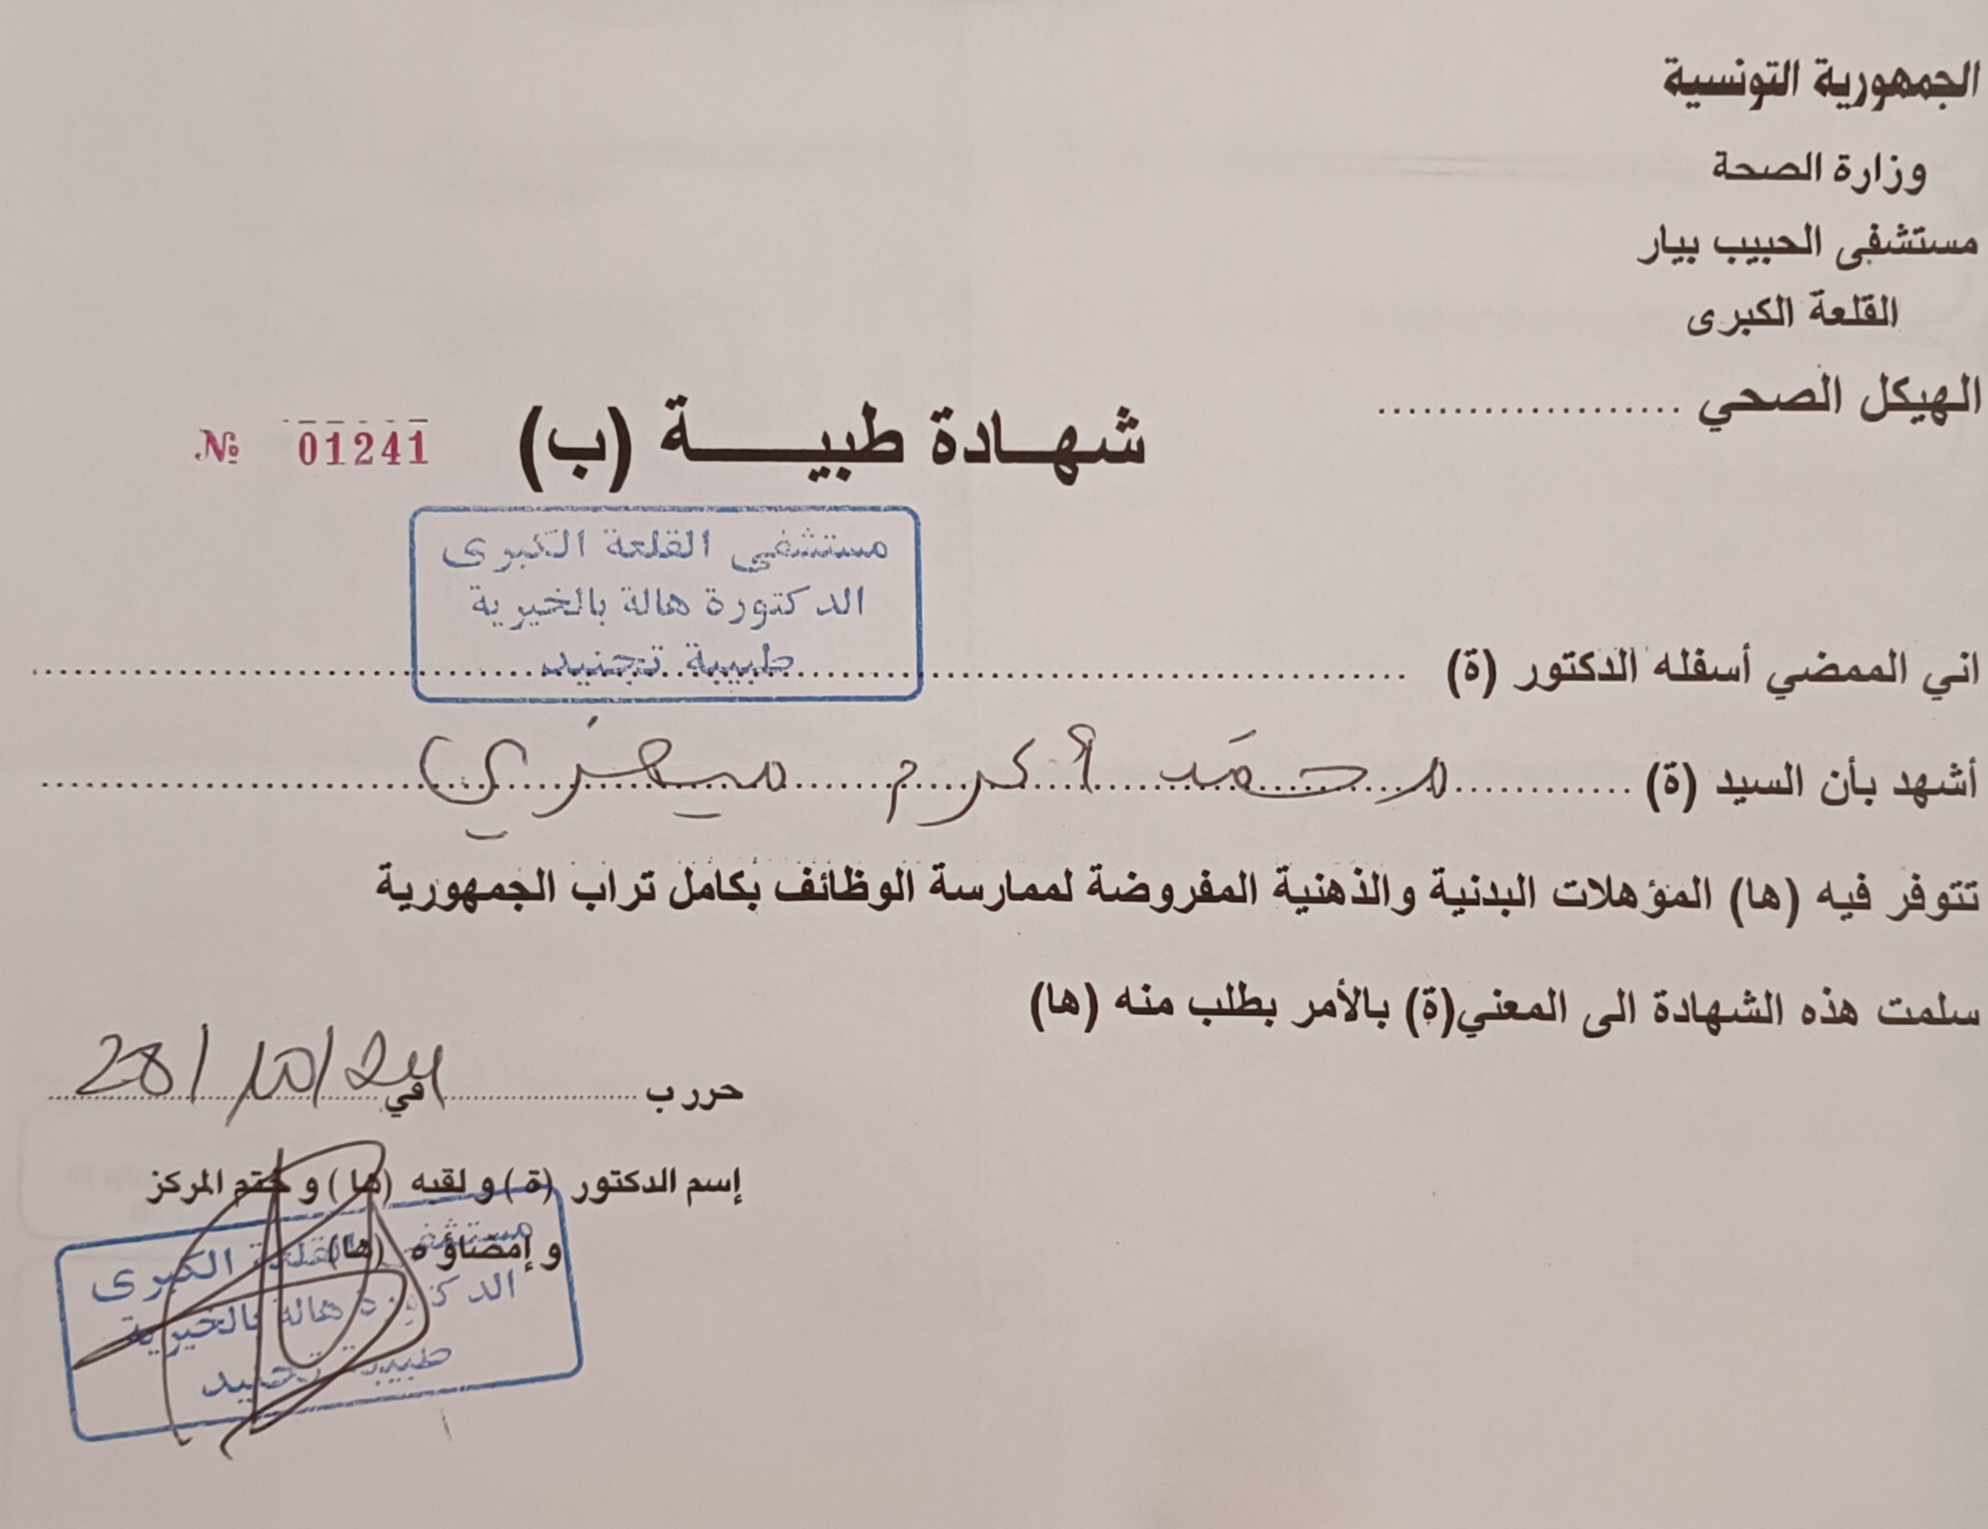 الجمهورية التونسية
وزارة الصحة
مستشفى الحبيب بيار
القلعة الكبرى
الهيكل الصحي ....................
شهـادة طبيـــــة (ب)
№ 01241
مستشفى القلعة الكبرى
الدكتورة هالة بالخيرية
طبيبة تجنيد
اني الممضي أسفله الدكتور (ة)
أشهد بأن السيد (ة) محمد أكرم
تتوفر فيه (ها) المؤهلات البدنية والذهنية المفروضة لممارسة الوظائف بكامل تراب الجمهورية
سلمت هذه الشهادة الى المعني(ة) بالأمر بطلب منه (ها)
حرر ب ........ في 28/10/24
إسم الدكتور (ة) و لقبه (ها) و ختم المركز
و إمضاؤه (ها)
مستشفى القلعة الكبرى
الدكتورة هالة بالخيرية
طبيبة تجنيد